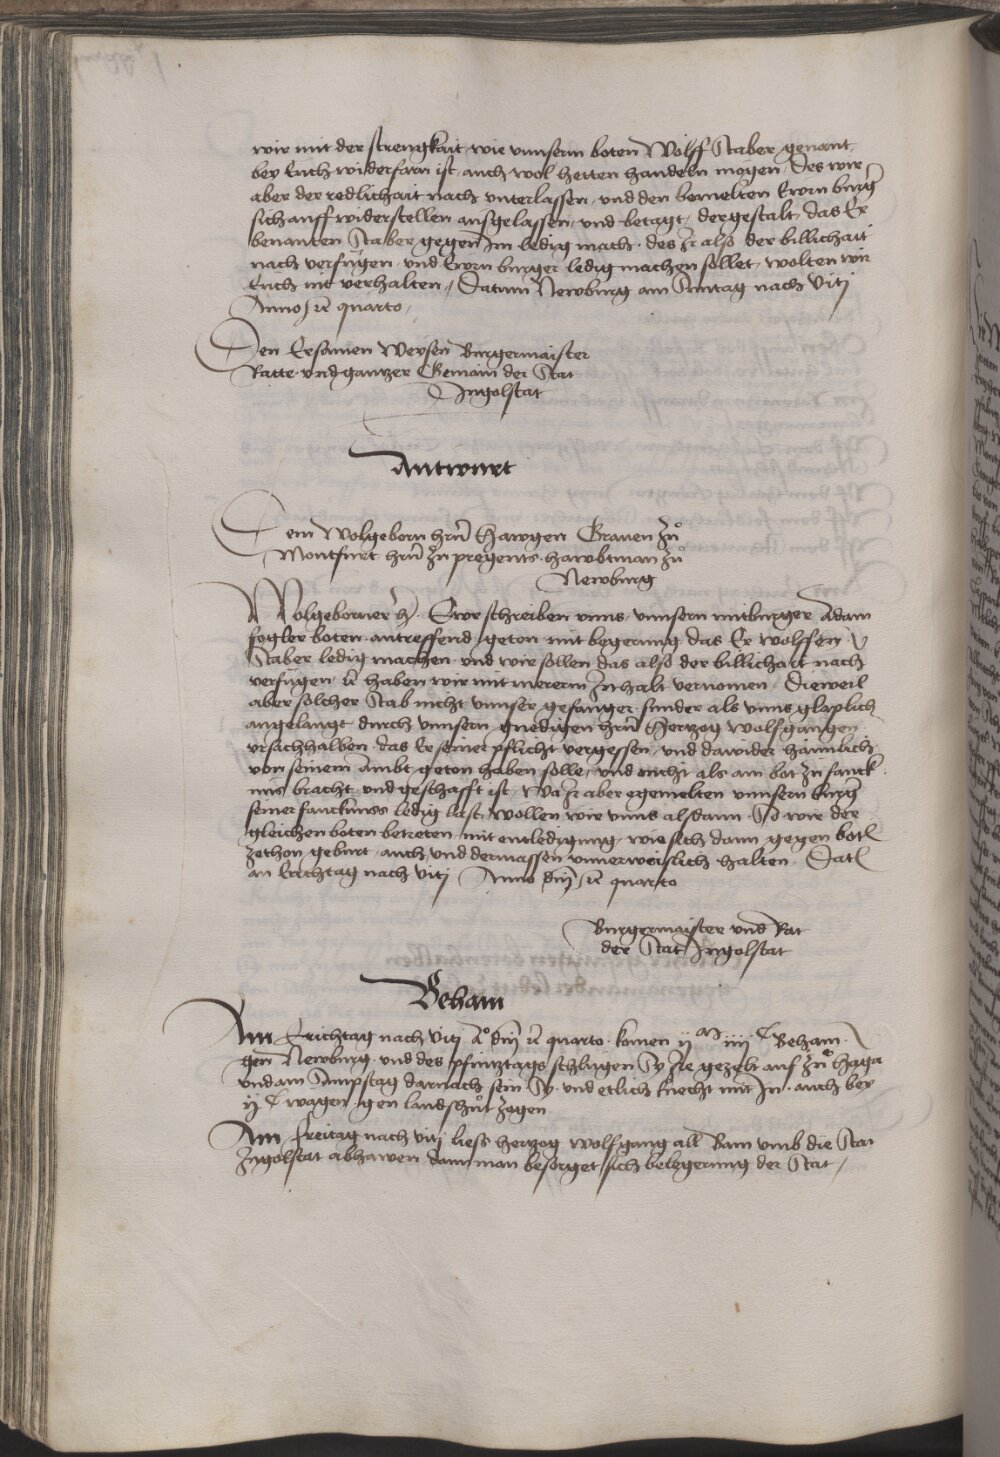 wir mit der strengkait, wie vnnserm boten Wolff Staber genant,
bey Euch widerfarn ist, auch wol hetten handeln mögen, Des wir
aber der redlichait nach vnterlassen, vnd den bemelten Ewrn burg̃
sich auff widerstellen ausgelassen, vnd betagt, dergestalt, das Er
benanten Staber gegen Im ledig mach, des Ir also der billichait
nach verfugen, vnd Ewrn burger ledig machen söllet, wolten wir
Euch nit verhalten, Datum Newburg am Suntag nach Viti
Anno ꝛc quarto,
Den Ersamen Weysen Burgermaister
Ratte vnd gantzer Gemain der Stat
Ingolstat
Antwurt
Dem Wolgeborn hrñ Hawgen Grauen zů
Montfurt hrñ zu pregents, hawbtman zů
Newburg
Wolgeborner h̃. Ewr schreiben vnns, vnnsern mitburger Adam
fogler boten antreffend, geton mit begerung, das Er wolffen
Staber ledig machen, vnd wir sollen das also der billichait nach
verfugen, ꝛc haben wir mit mererm Inhalt vernomen, Dieweil
aber solcher Stab nicht vnnser gefanger, sunder als vnns glaplich
angelangt, durch vnnsern gnedigen hrñ Hertzog Wolfgangen
vrsachhalben, das Er seiner pflicht vergessen, vnd dawider haimlich
von seinem Ambt geton haben solle, vnd nicht als ain bot zu fanck
nus bracht, vnd geschafft ist, Wa Ir aber egemelten vnnsern burg̃
seiner fancknuss ledig last, wollen wir vnns alsdann, So wir der
gleichen boten betreten, mit entledigung, wie sich dann gegen botñ
zethon geburt, auch, vnd dermassen vnuerweislich halten, Datũ
an Erichtag nach Viti Anno dñi ꝛc quarto
Burgermaister vnd Rat
der Stat Ingolstat
Beham
Am Erichtag nach Viti Aº dñi ꝛc quarto komen ij ᵐ iiij ᶜ Beham
gen Newburg, vnd des pfintztags schlugen Sy Ire gezelt auf zu Haga
vnd am Sampstag darnach sein Sy, vnd etlich knecht mit In, auch bey
ij ᶜ wagen gen landshůt zogen
Am freitag nach Viti liess hertzog Wolfgang all Bam vmb die Stat
Ingolstat abhawen, dann man besorget sich belegerung der Stat,